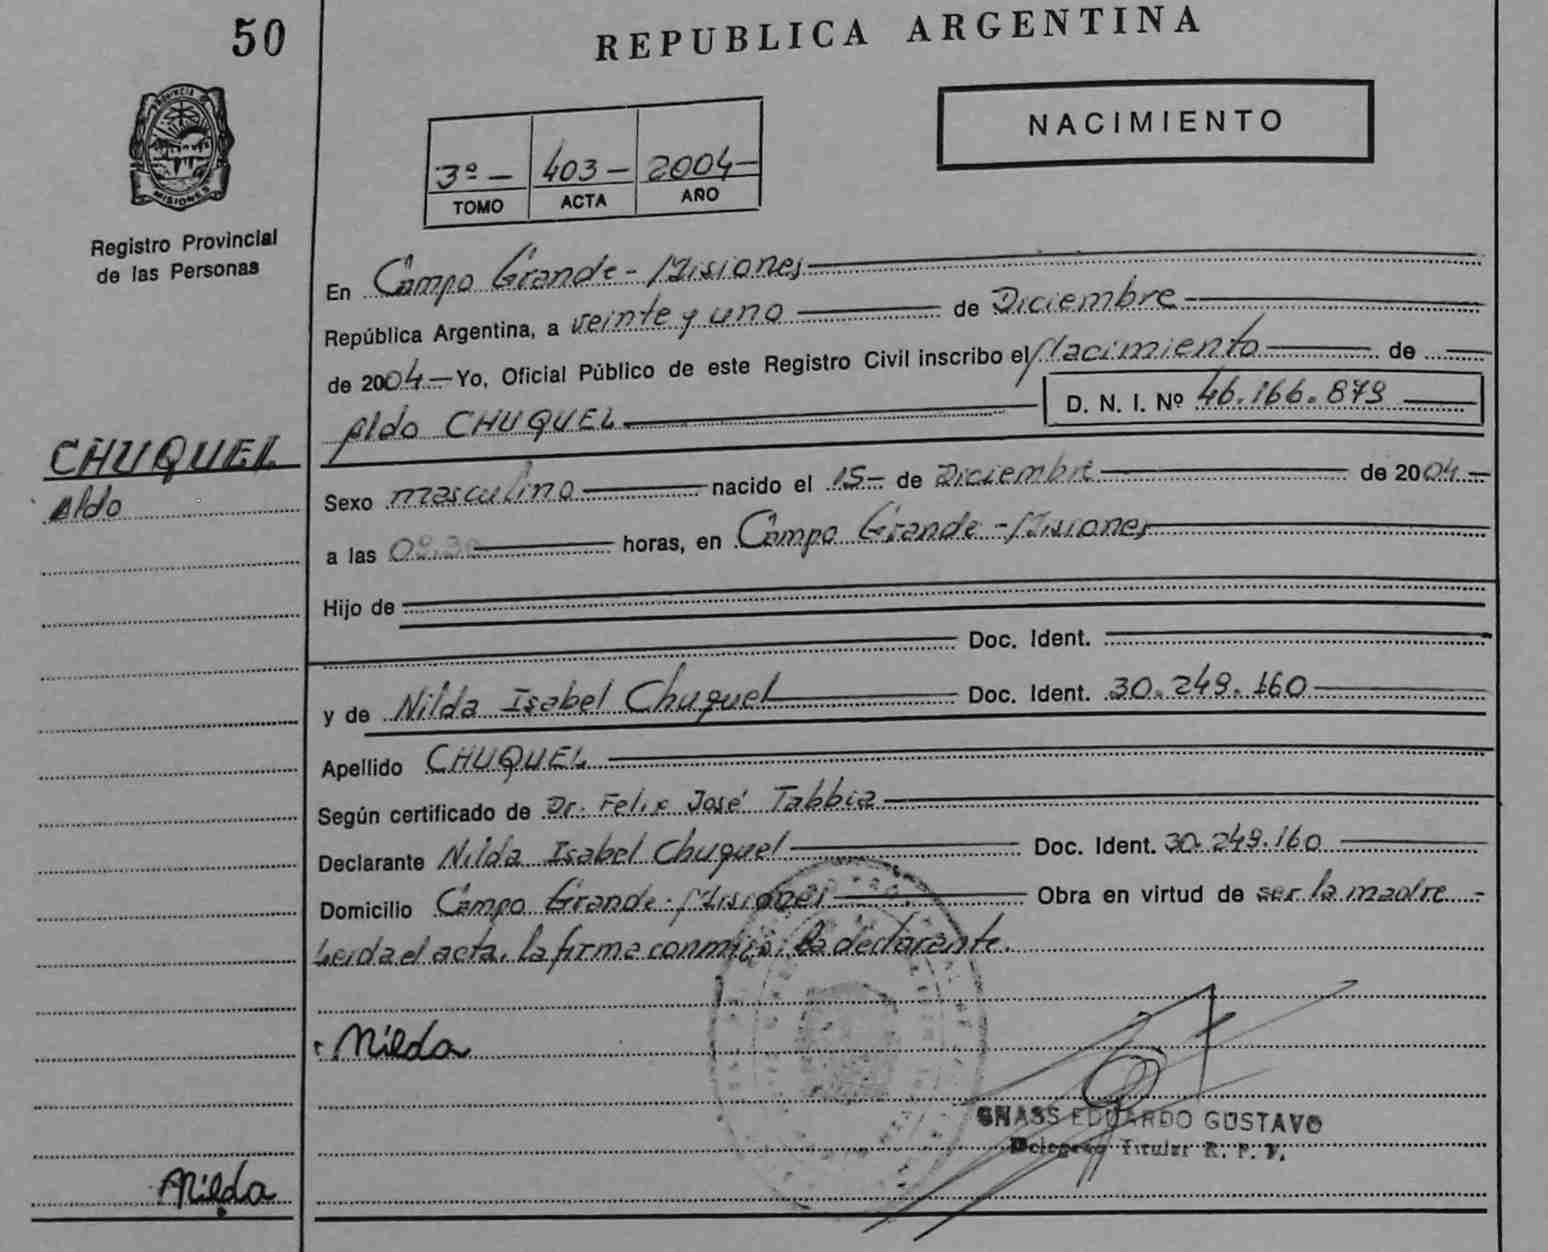 50
REPUBLICA ARGENTINA
PROVINCIA DE
MISIONES
Registro Provincial
de las Personas
NACIMIENTO
3º - 403 - 2004 -
TOMO ACTA AÑO
En Campo Grande - Misiones
República Argentina, a veinte y uno de Diciembre
de 2004 - Yo, Oficial Público de este Registro Civil inscribo el Nacimiento de
Aldo CHUQUEL D. N. I. Nº 46.166.879
CHUQUEL
Aldo
Sexo masculino nacido el 15 - de Diciembre de 2004 -
a las 08:30 horas, en Campo Grande - Misiones
Hijo de
Doc. Ident.
y de Nilda Isabel Chuquel Doc. Ident. 30.249.160
Apellido CHUQUEL
Según certificado de Dr. Felix José Tabbia
Declarante Nilda Isabel Chuquel Doc. Ident. 30.249.160
Domicilio Campo Grande - Misiones Obra en virtud de ser la madre -
Leida el acta, la firma conmigo; la declarante.
Nilda
GNASS EDUARDO GUSTAVO
Delegado Titular R. P. P.
Nilda